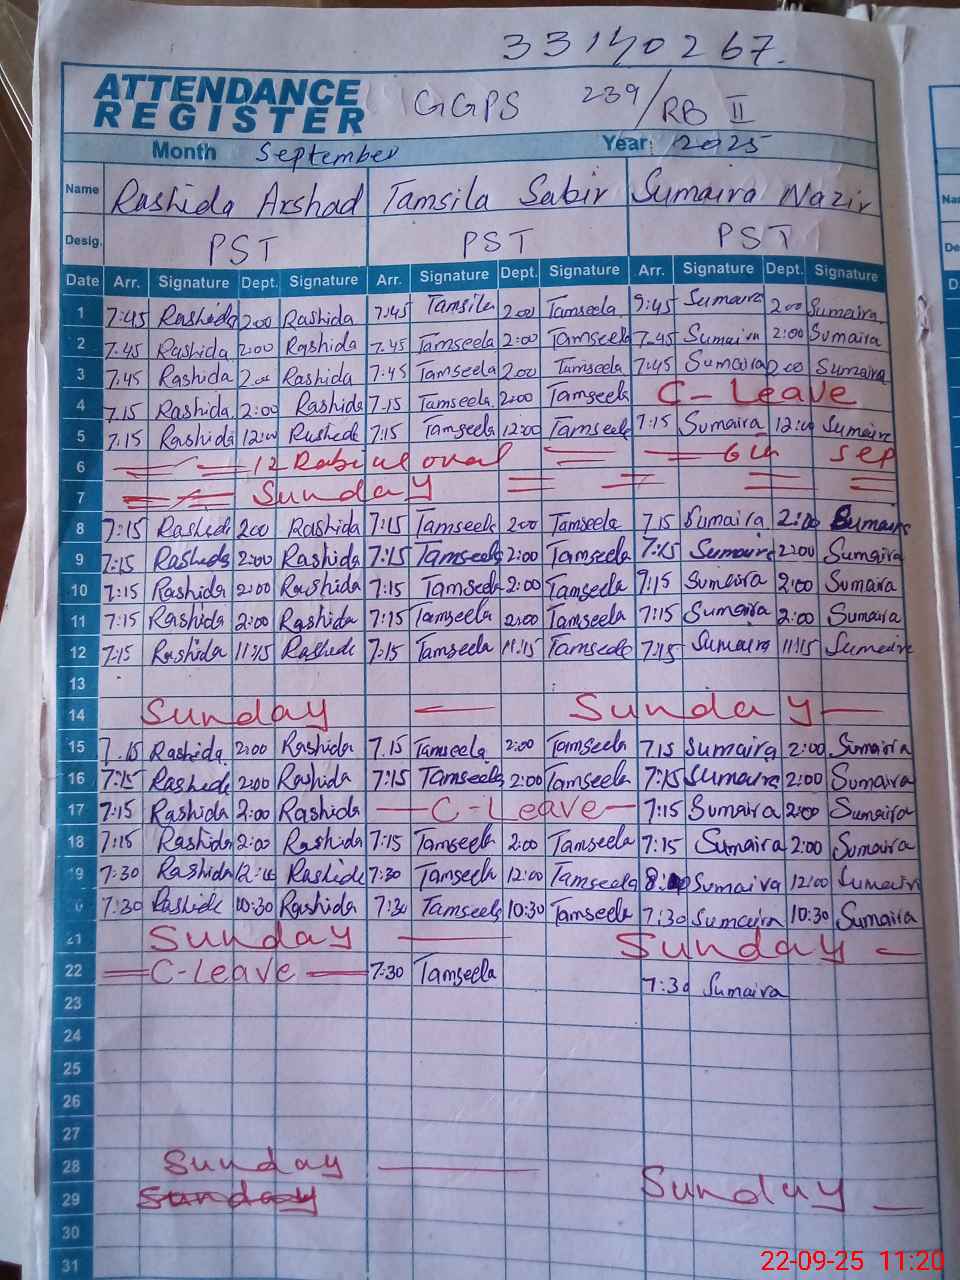 33140267.
ATTENDANCE REGISTER GGPS 239/RB II
Month September Year: 2025
Name Rashida Arshad Tamsila Sabir Sumaira Nazir
Desig. PST PST PST
Date Arr. Signature Dept. Signature Arr. Signature Dept. Signature Arr. Signature Dept. Signature
1 7:45 Rashida 2:00 Rashida 7:45 Tamsila 2:00 Tamseela 9:45 Sumaira 2:00 Sumaira
2 7.45 Rashida 2:00 Rashida 7.45 Tamseela 2:00 Tamseela 7.45 Sumaira 2:00 Sumaira
3 7.45 Rashida 2:00 Rashida 7:45 Tamseela 2:00 Tamseela 7:45 Sumaira 2:00 Sumaira
4 7.15 Rashida 2:00 Rashida 7.15 Tamseela 2:00 Tamseela C-Leave
5 7:15 Rashida 12:00 Rashida 7:15 Tamseela 12:00 Tamseela 7:15 Sumaira 12:00 Sumaira
6 12 Rabi ul oval 6th sep
7 Sunday
8 7:15 Rashida 2:00 Rashida 7:15 Tamseela 2:00 Tamseela 7.15 Sumaira 2:00 Sumaira
9 7:15 Rasheda 2:00 Rashida 7:15 Tamseela 2:00 Tamseela 7:15 Sumaira 2:00 Sumaira
10 7:15 Rashida 2:00 Rashida 7:15 Tamseela 2:00 Tamseela 9:15 Sumaira 2:00 Sumaira
11 7:15 Rashida 2:00 Rashida 7:15 Tamseela 2:00 Tamseela 7:15 Sumaira 2:00 Sumaira
12 7:15 Rashida 11:15 Rashida 7:15 Tamseela 11:15 Tamseela 7:15 Sumaira 11:15 Sumaira
13
14 Sunday Sunday
15 7.15 Rashida 2:00 Rashida 7.15 Tamseela 2:00 Tamseela 7.15 Sumaira 2:00 Sumaira
16 7:15 Rashida 2:00 Rashida 7:15 Tamseela 2:00 Tamseela 7:15 Sumaira 2:00 Sumaira
17 7:15 Rashida 2:00 Rashida C-Leave 7:15 Sumaira 2:00 Sumaira
18 7:15 Rashida 2:00 Rashida 7:15 Tamseela 2:00 Tamseela 7:15 Sumaira 2:00 Sumaira
19 7:30 Rashida 12:00 Rashida 7:30 Tamseela 12:00 Tamseela Sumaira 12:00 Sumaira
0 7:30 Rashida 10:30 Rashida 7:30 Tamseela 10:30 Tamseela 7:30 Sumaira 10:30 Sumaira
21 Sunday Sunday
22 C-Leave 7:30 Tamseela 7:30 Sumaira
23
24
25
26
27
28 Sunday Sunday
29 Sunday
30
31
22-09-25 11:20